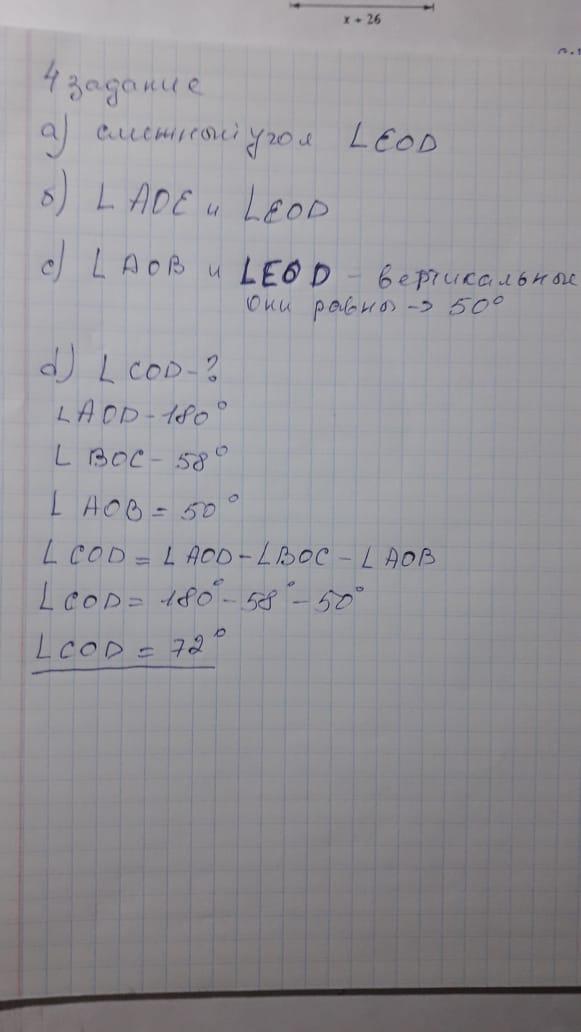 x + 26
4 задание
а) смежный угол ∠EOD
б) ∠AOE и ∠EOD
c) ∠AOB и ∠EOD - вертикальные
они равны → 50°
d) ∠COD - ?
∠AOD - 180°
∠BOC - 58°
∠AOB = 50°
∠COD = ∠AOD - ∠BOC - ∠AOB
∠COD = 180° - 58° - 50°
∠COD = 72°